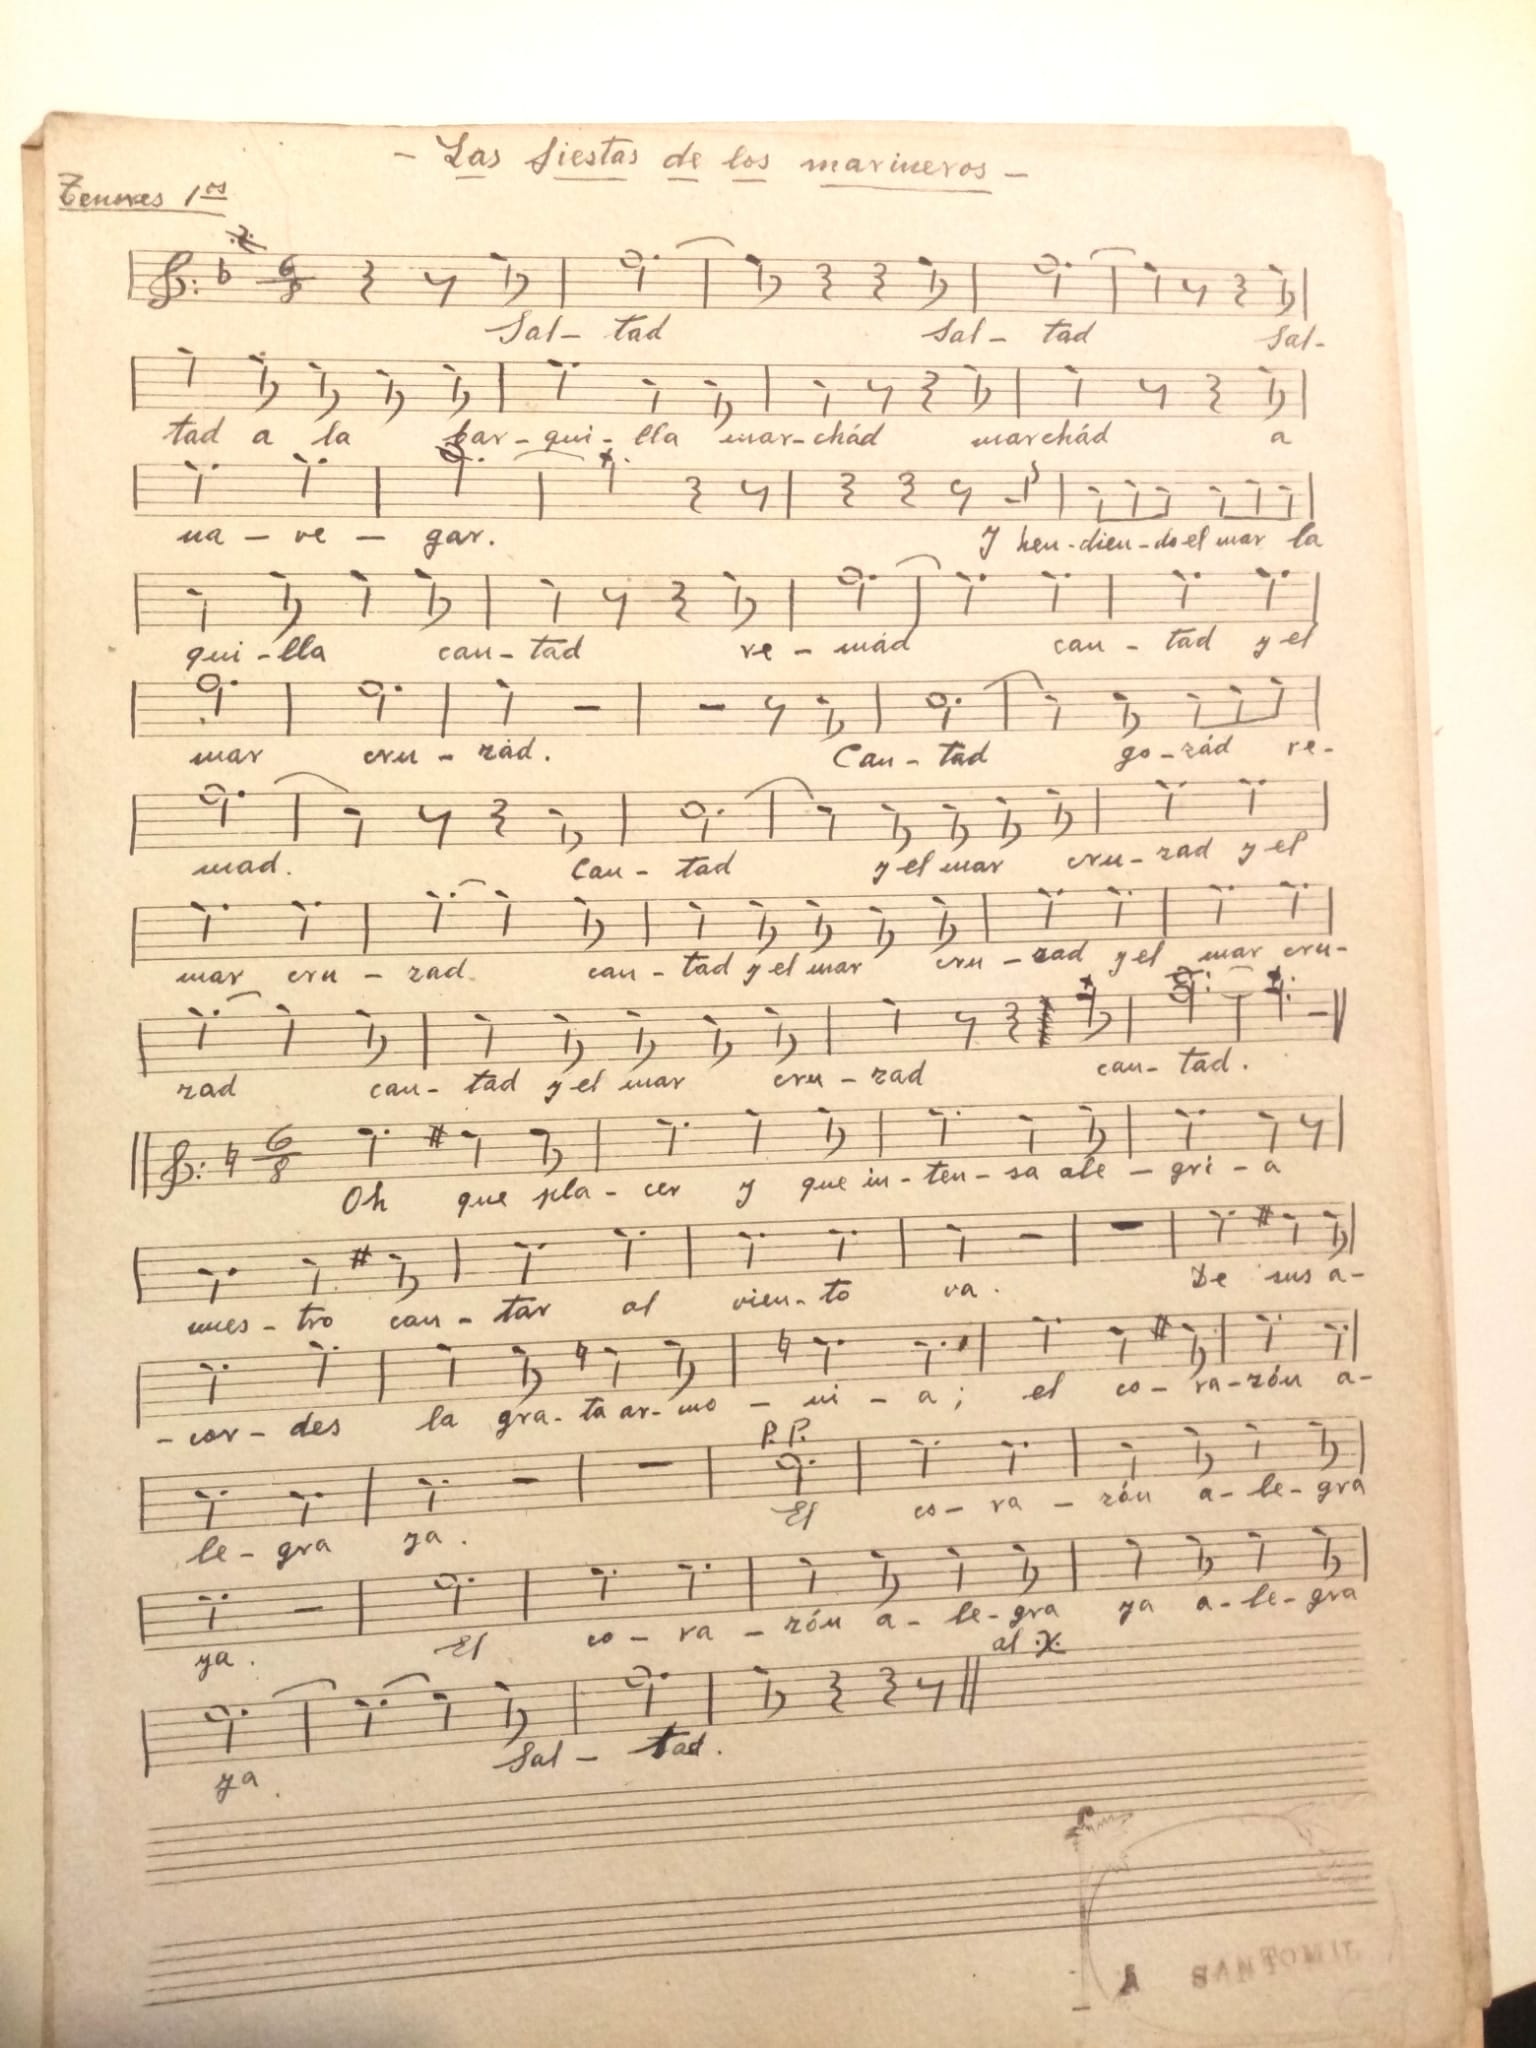 - Las fiestas de los marineros -
Tenores 1os
6/8
Sal- tad sal- tad Sal-
tad a la bar- qui- lla mar- chád marchád a
na - ve - gar. Y hen-dien-do el mar la
qui-lla can- tad re - mád can - tad y el
mar cru - zád. Can - tad go-zád re-
mad. Can - tad y el mar cru- zad y el
mar cru - zad can - tad y el mar cru - zad y el mar cru-
zad can- tad y el mar cru - zad can- tad.
6/8
Oh que pla- cer y que in- ten- sa ale - gri - a
nues - tro can - tar al vien- to va. De sus a-
- cor - des la gra- ta ar- mo - ni - a; el co- ra-zón a-
P.P.
le- gra ya. El co- ra - zón a- le- gra
ya. El co - ra - zón a- le- gra ya a- le- gra
al
ya. Sal - tad.
SANTOMIL